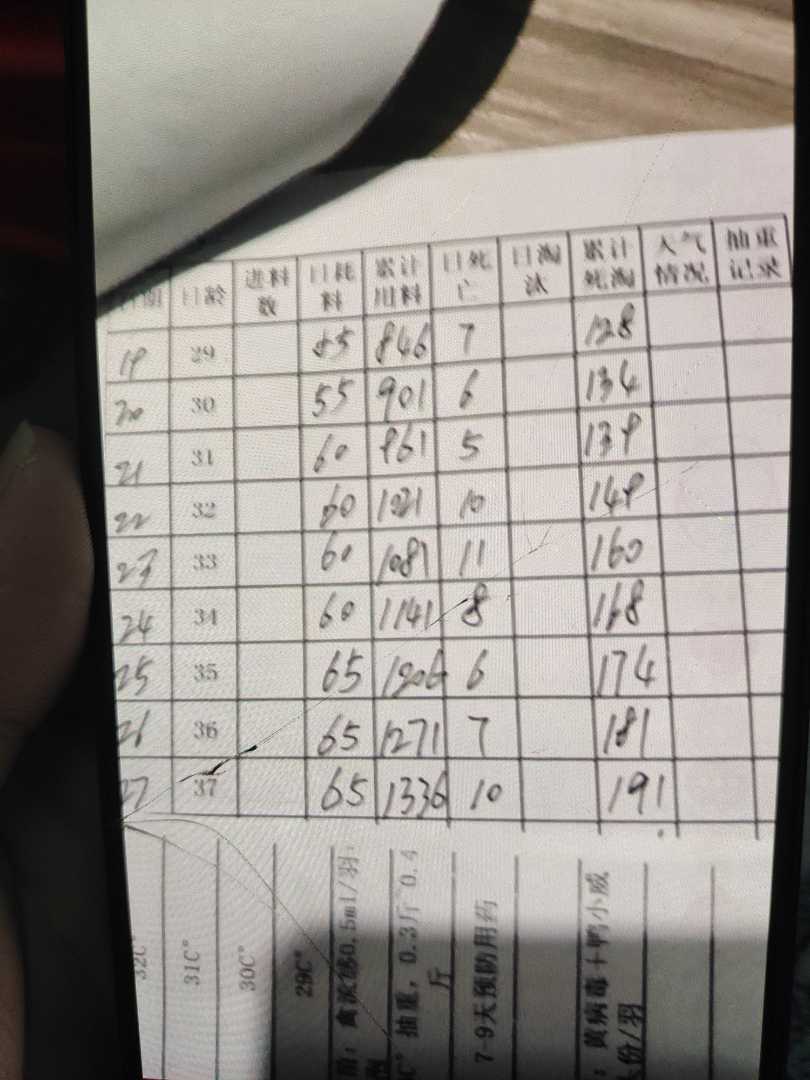 日期 日龄 进料数 日耗料 累计用料 日死亡 日淘汰 累计死淘 天气情况 抽重记录
19 29 846 7 128
20 30 55 901 6 134
21 31 60 961 5 139
22 32 60 1021 10 149
23 33 60 1081 11 160
24 34 60 1141 8 168
25 35 65 1206 6 174
26 36 65 1271 7 181
27 37 65 1336 10 191
32C°
31C°
30C°
29C°
禽流感0.5ml/羽，
C°抽重，0.3斤-0.4
斤
7-9天预防用药
：黄病毒+鸭小威
份/羽